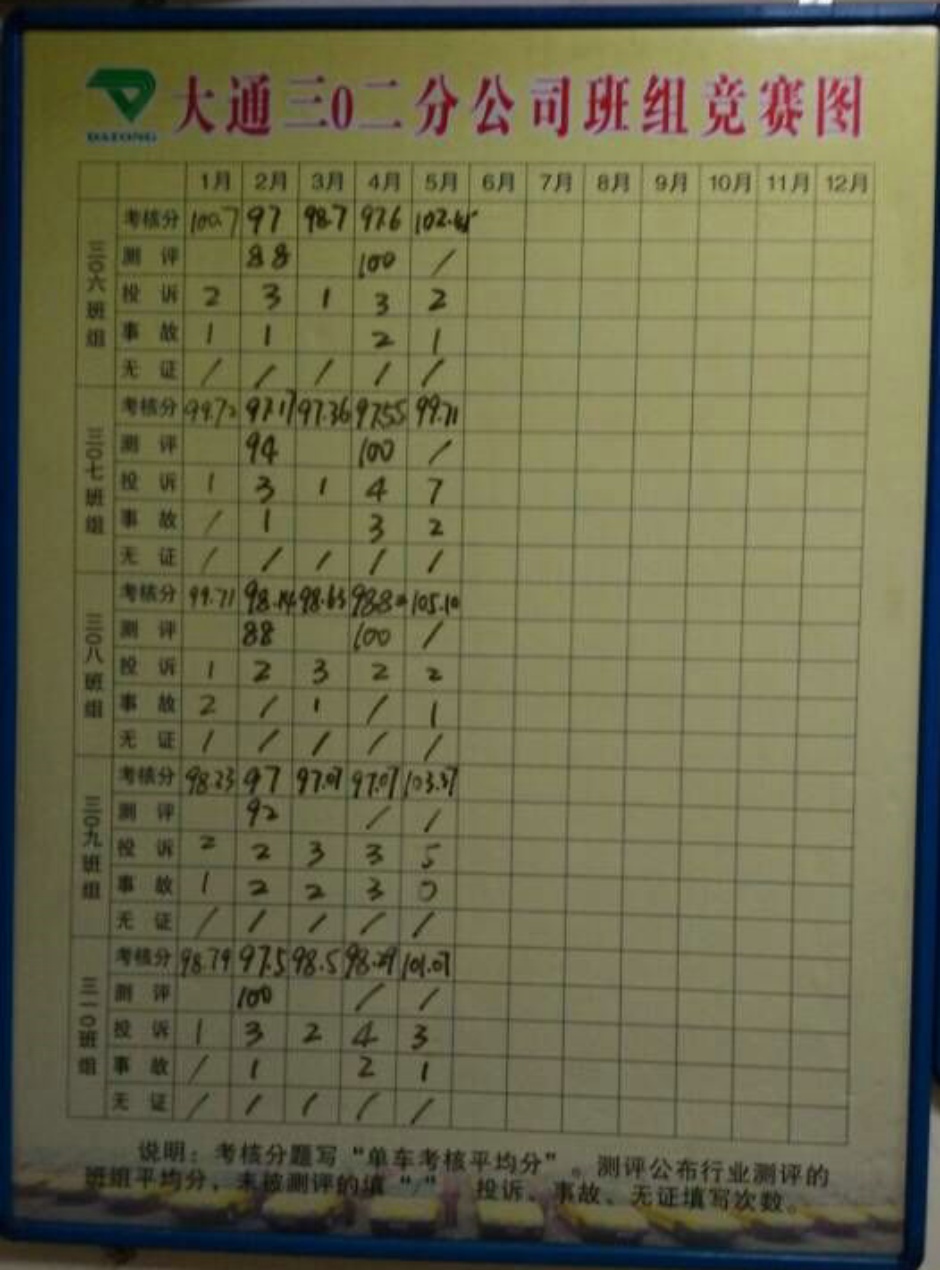 DAZONG
大通三0二分公司班组竞赛图
1月 2月 3月 4月 5月 6月 7月 8月 9月 10月 11月 12月
三〇六班组
考核分 100.7 97 98.7 97.6
测评 88 100 /
投诉 2 3 1 3 2
事故 1 1 2 1
无证 / / / / /
三〇七班组
考核分 99.72 97.17 97.36 97.55 99.71
测评 94 100 /
投诉 1 3 1 4 7
事故 / 1 3 2
无证 / / / / /
三〇八班组
考核分 99.71 98.14 98.63 105.10
测评 88 100 /
投诉 1 2 3 2 2
事故 2 / 1 / 1
无证 / / / / /
三〇九班组
考核分 98.23 97 97.07 97.07 103.37
测评 92 / /
投诉 2 2 3 3 5
事故 1 2 2 3 0
无证 / / / / /
三一〇班组
考核分 98.79 97.5 98.5 98.29 101.07
测评 100 / /
投诉 1 3 2 4 3
事故 / 1 2 1
无证 / / / / /
说明：考核分题写“单车考核平均分”。测评公布行业测评的
班组平均分，未被测评的填“/” 投诉、事故、无证填写次数。